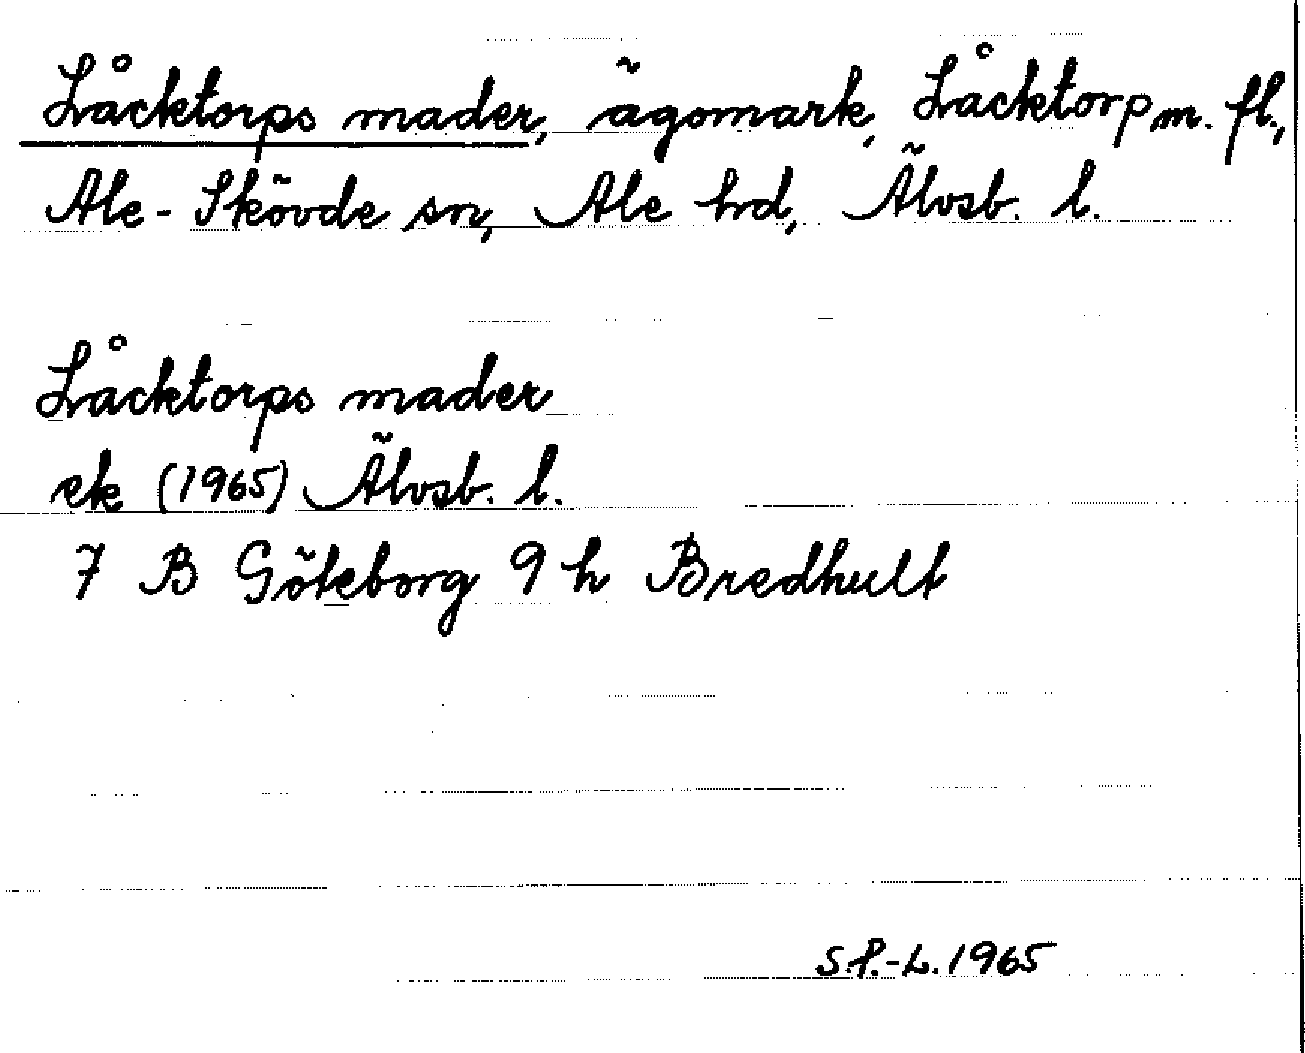 Låcktorps mader, ägomark, Låcktorp m. fl.,
Ale-Skövde sn, Ale hd, Älvsb. l.
Låcktorps mader
ek (1965) Älvsb. l.
7 B Göteborg 9 h Bredhult
S.P.-L. 1965